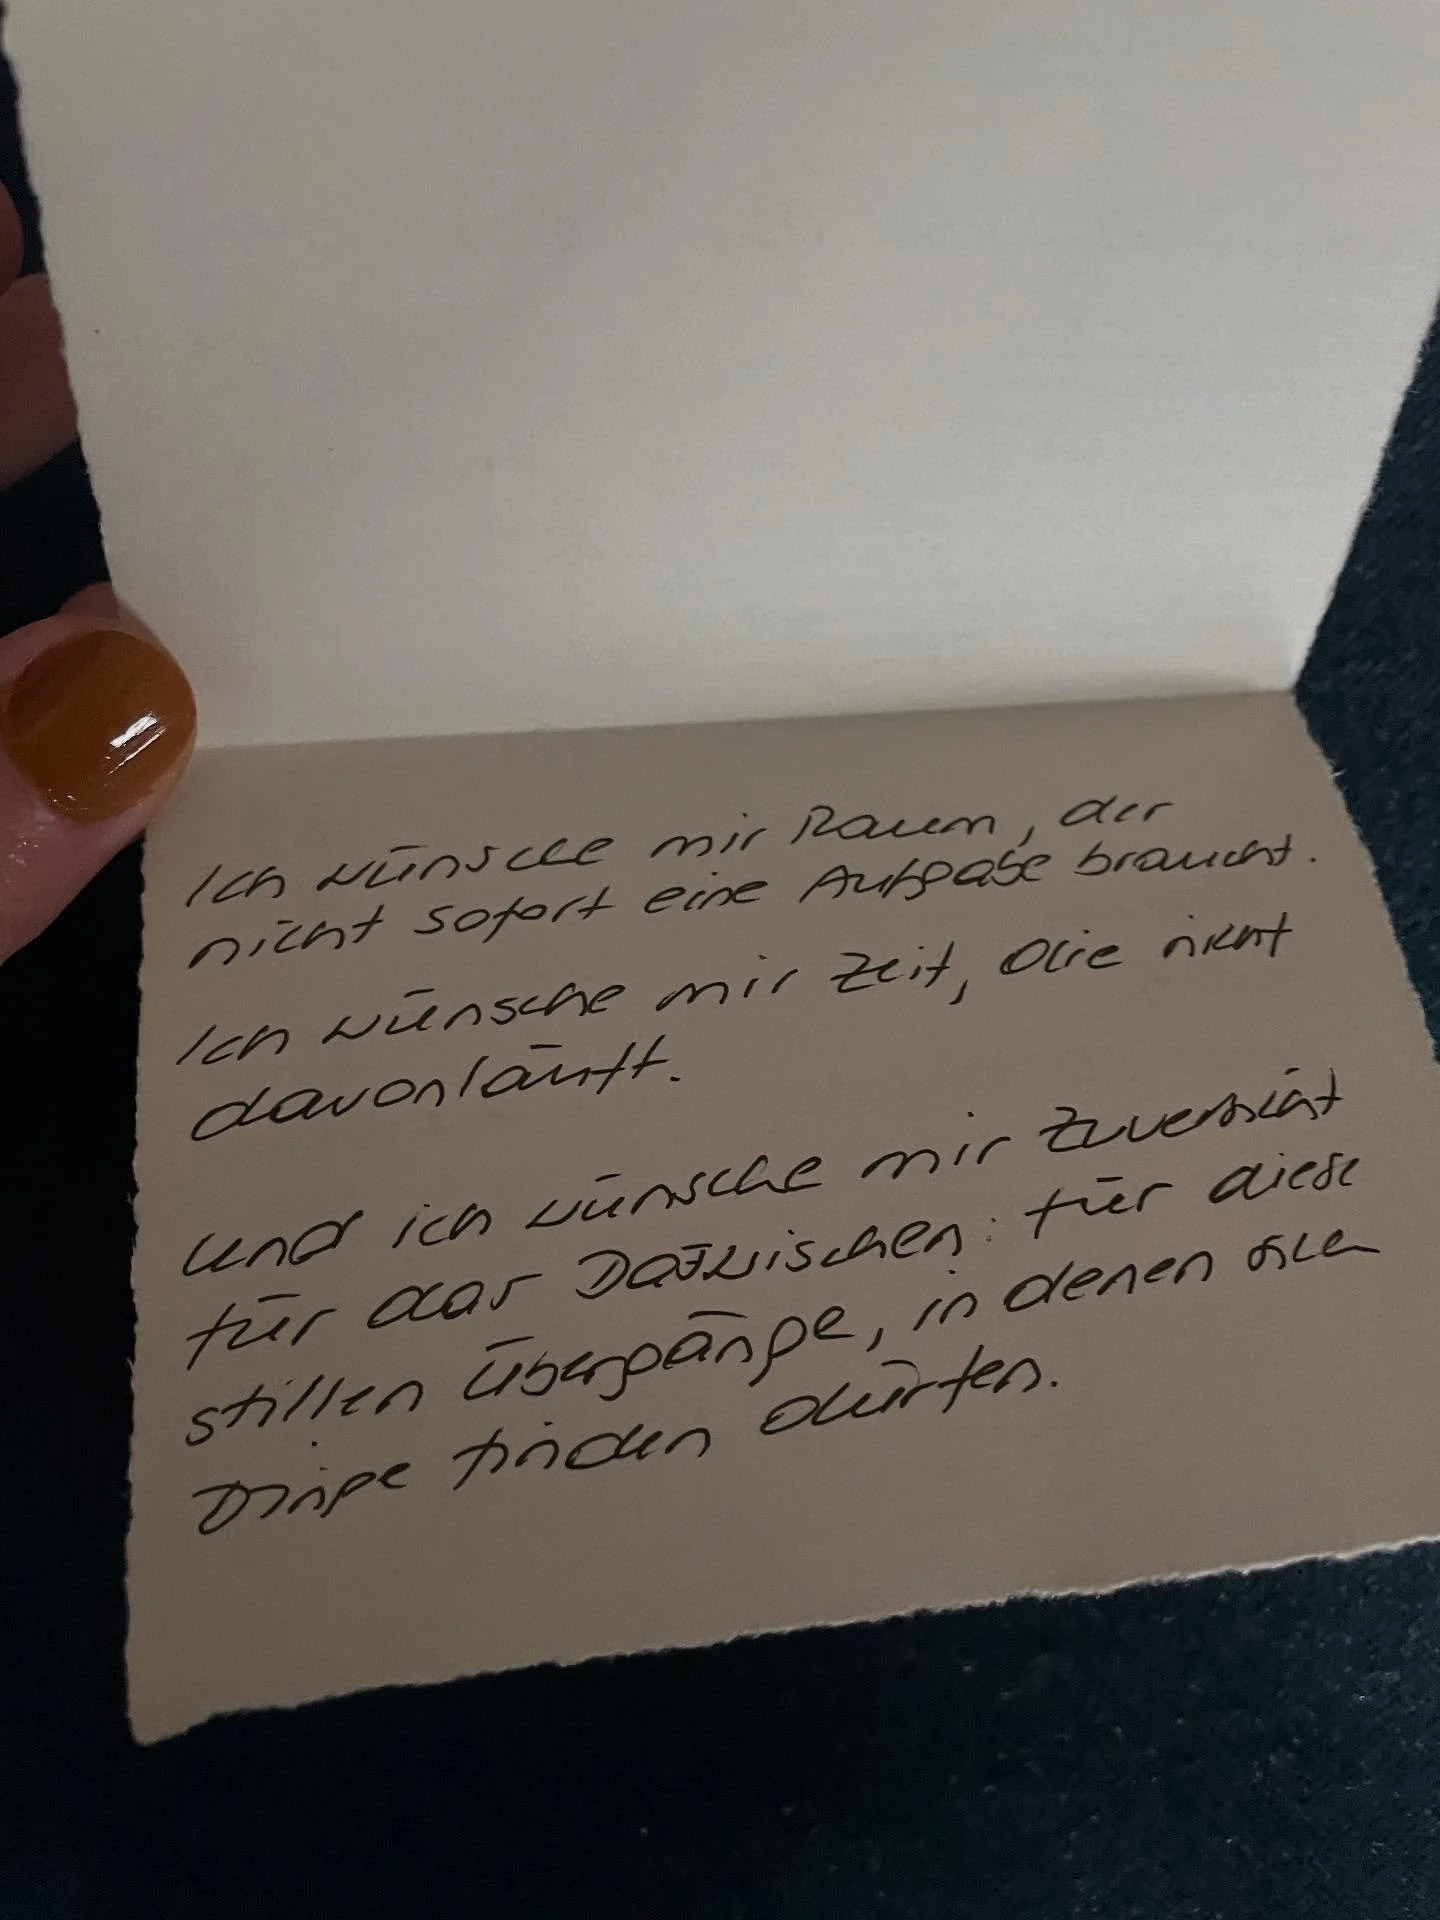 Ich wünsche mir Raum, der
nicht sofort eine Aufgabe braucht.
Ich wünsche mir Zeit, die nicht
davonläuft.
Und ich wünsche mir Zuversicht
für das Dazwischen: für diese
stillen Übergänge, in denen sich
Dinge finden dürfen.